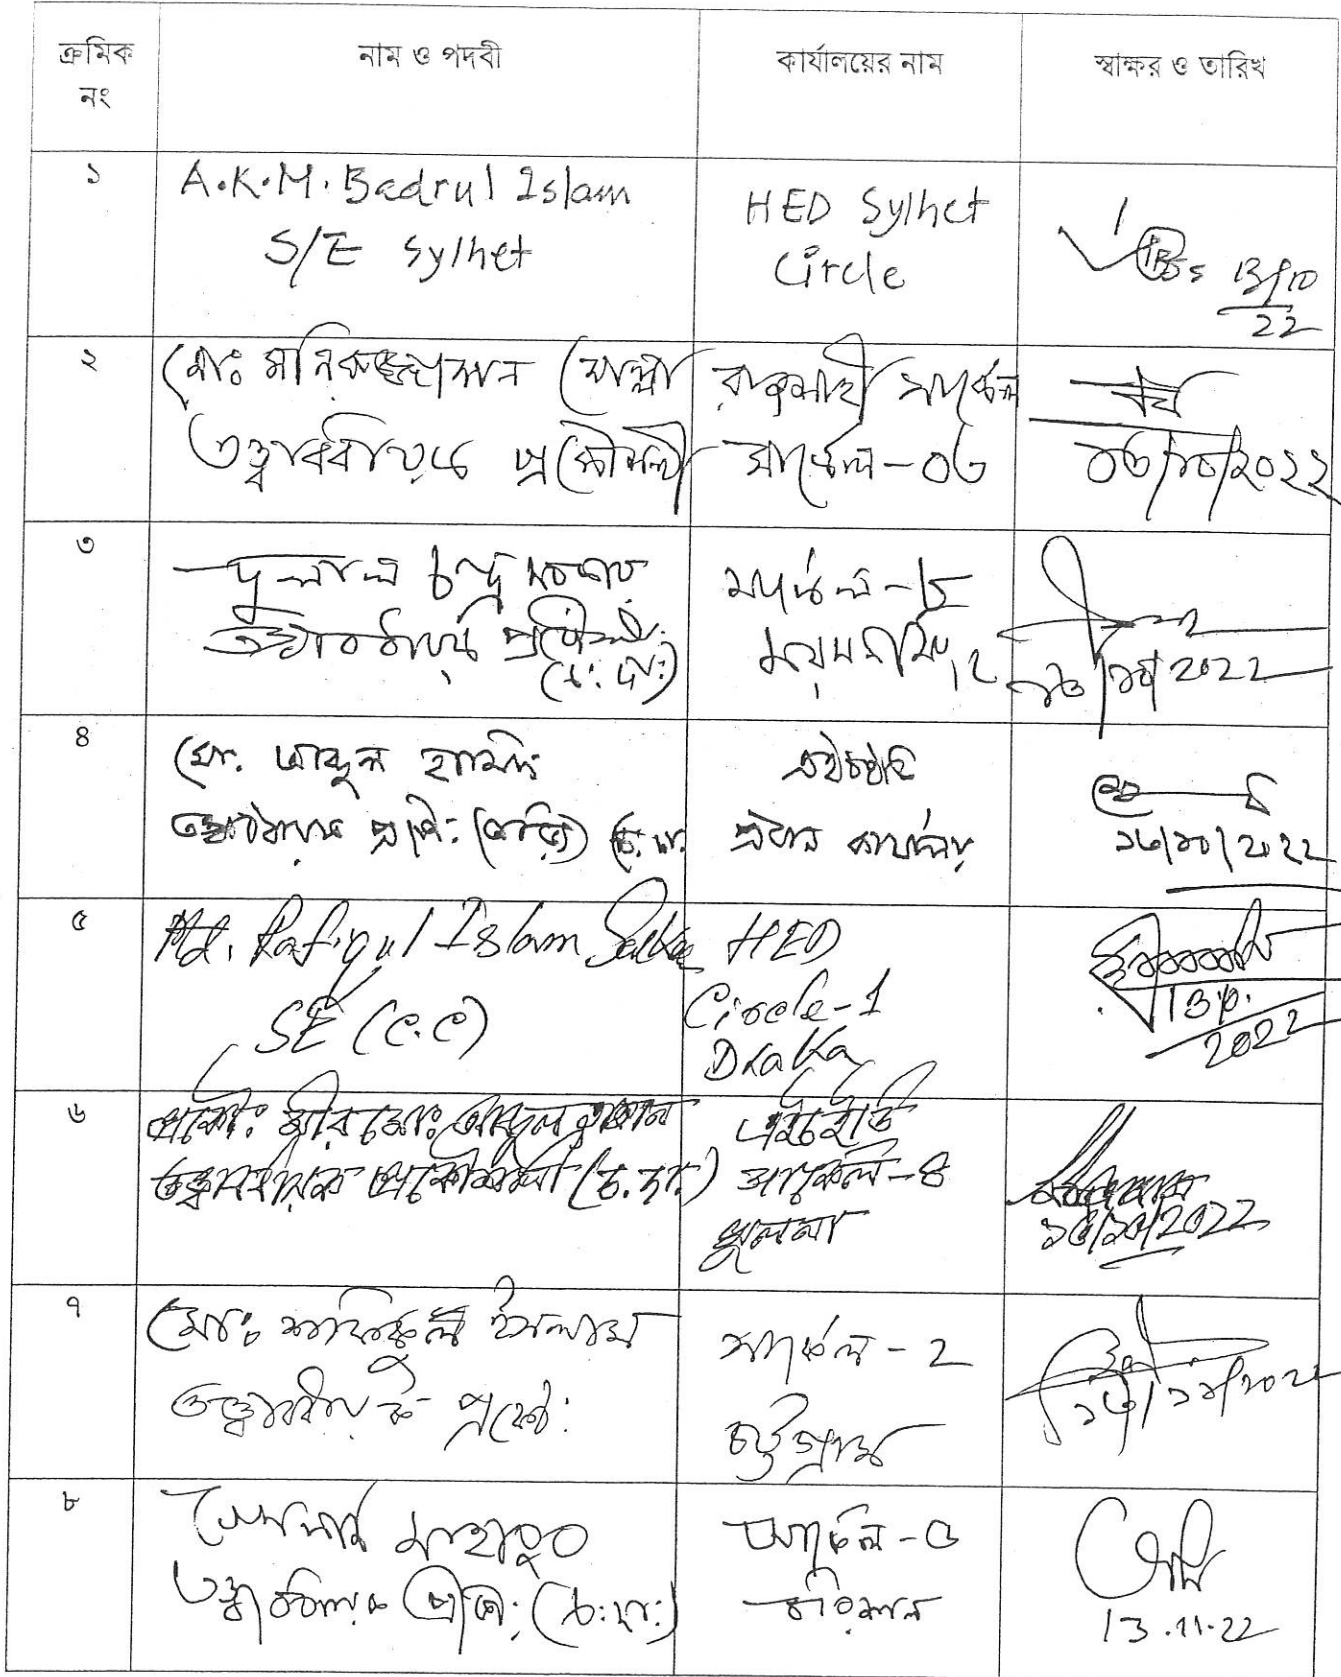 ক্রমিক নং
নাম ও পদবী
কার্যালয়ের নাম
স্বাক্ষর ও তারিখ
১
A.K.M. Badrul Islam
S/E Sylhet
HED Sylhet
Circle
13/10
22
২
মোঃ মনিরুজ্জামান মোল্লা
তত্ত্বাবধায়ক প্রকৌশলী
রাজশাহী সার্কেল
সার্কেল-০৩
১৩/১০/২০২২
৩
দুলাল চন্দ্র সরকার
তত্ত্বাবধায়ক প্রকৌশলী
(চ: দা:)
ময়মনসিংহ
১৩/১০/2022
৪
মো. আব্দুল হামিদ
তত্ত্বাবধায়ক প্রকৌ: (চ: দা:
এইচইডি
প্রধান কার্যালয়
১৩/১০/2022
৫
Md. Rafiqul Islam
SE (C.C)
HED
Circle-1
Dhaka
13/10.
2022
৬
প্রকৌ: মীর মো: আব্দুল
তত্ত্বাবধায়ক প্রকৌশলী (চ.দা.)
এইচইডি
সার্কেল-৪
খুলনা
১৩/১০/2022
৭
মোঃ শফিকুল ইসলাম
তত্ত্বাবধায়ক প্রকৌ:
সার্কেল-2
চট্টগ্রাম
৮
মাহমুদ
তত্ত্বাবধায়ক প্রকৌ: (চ:দা:)
সার্কেল-৫
বরিশাল
13.11.22